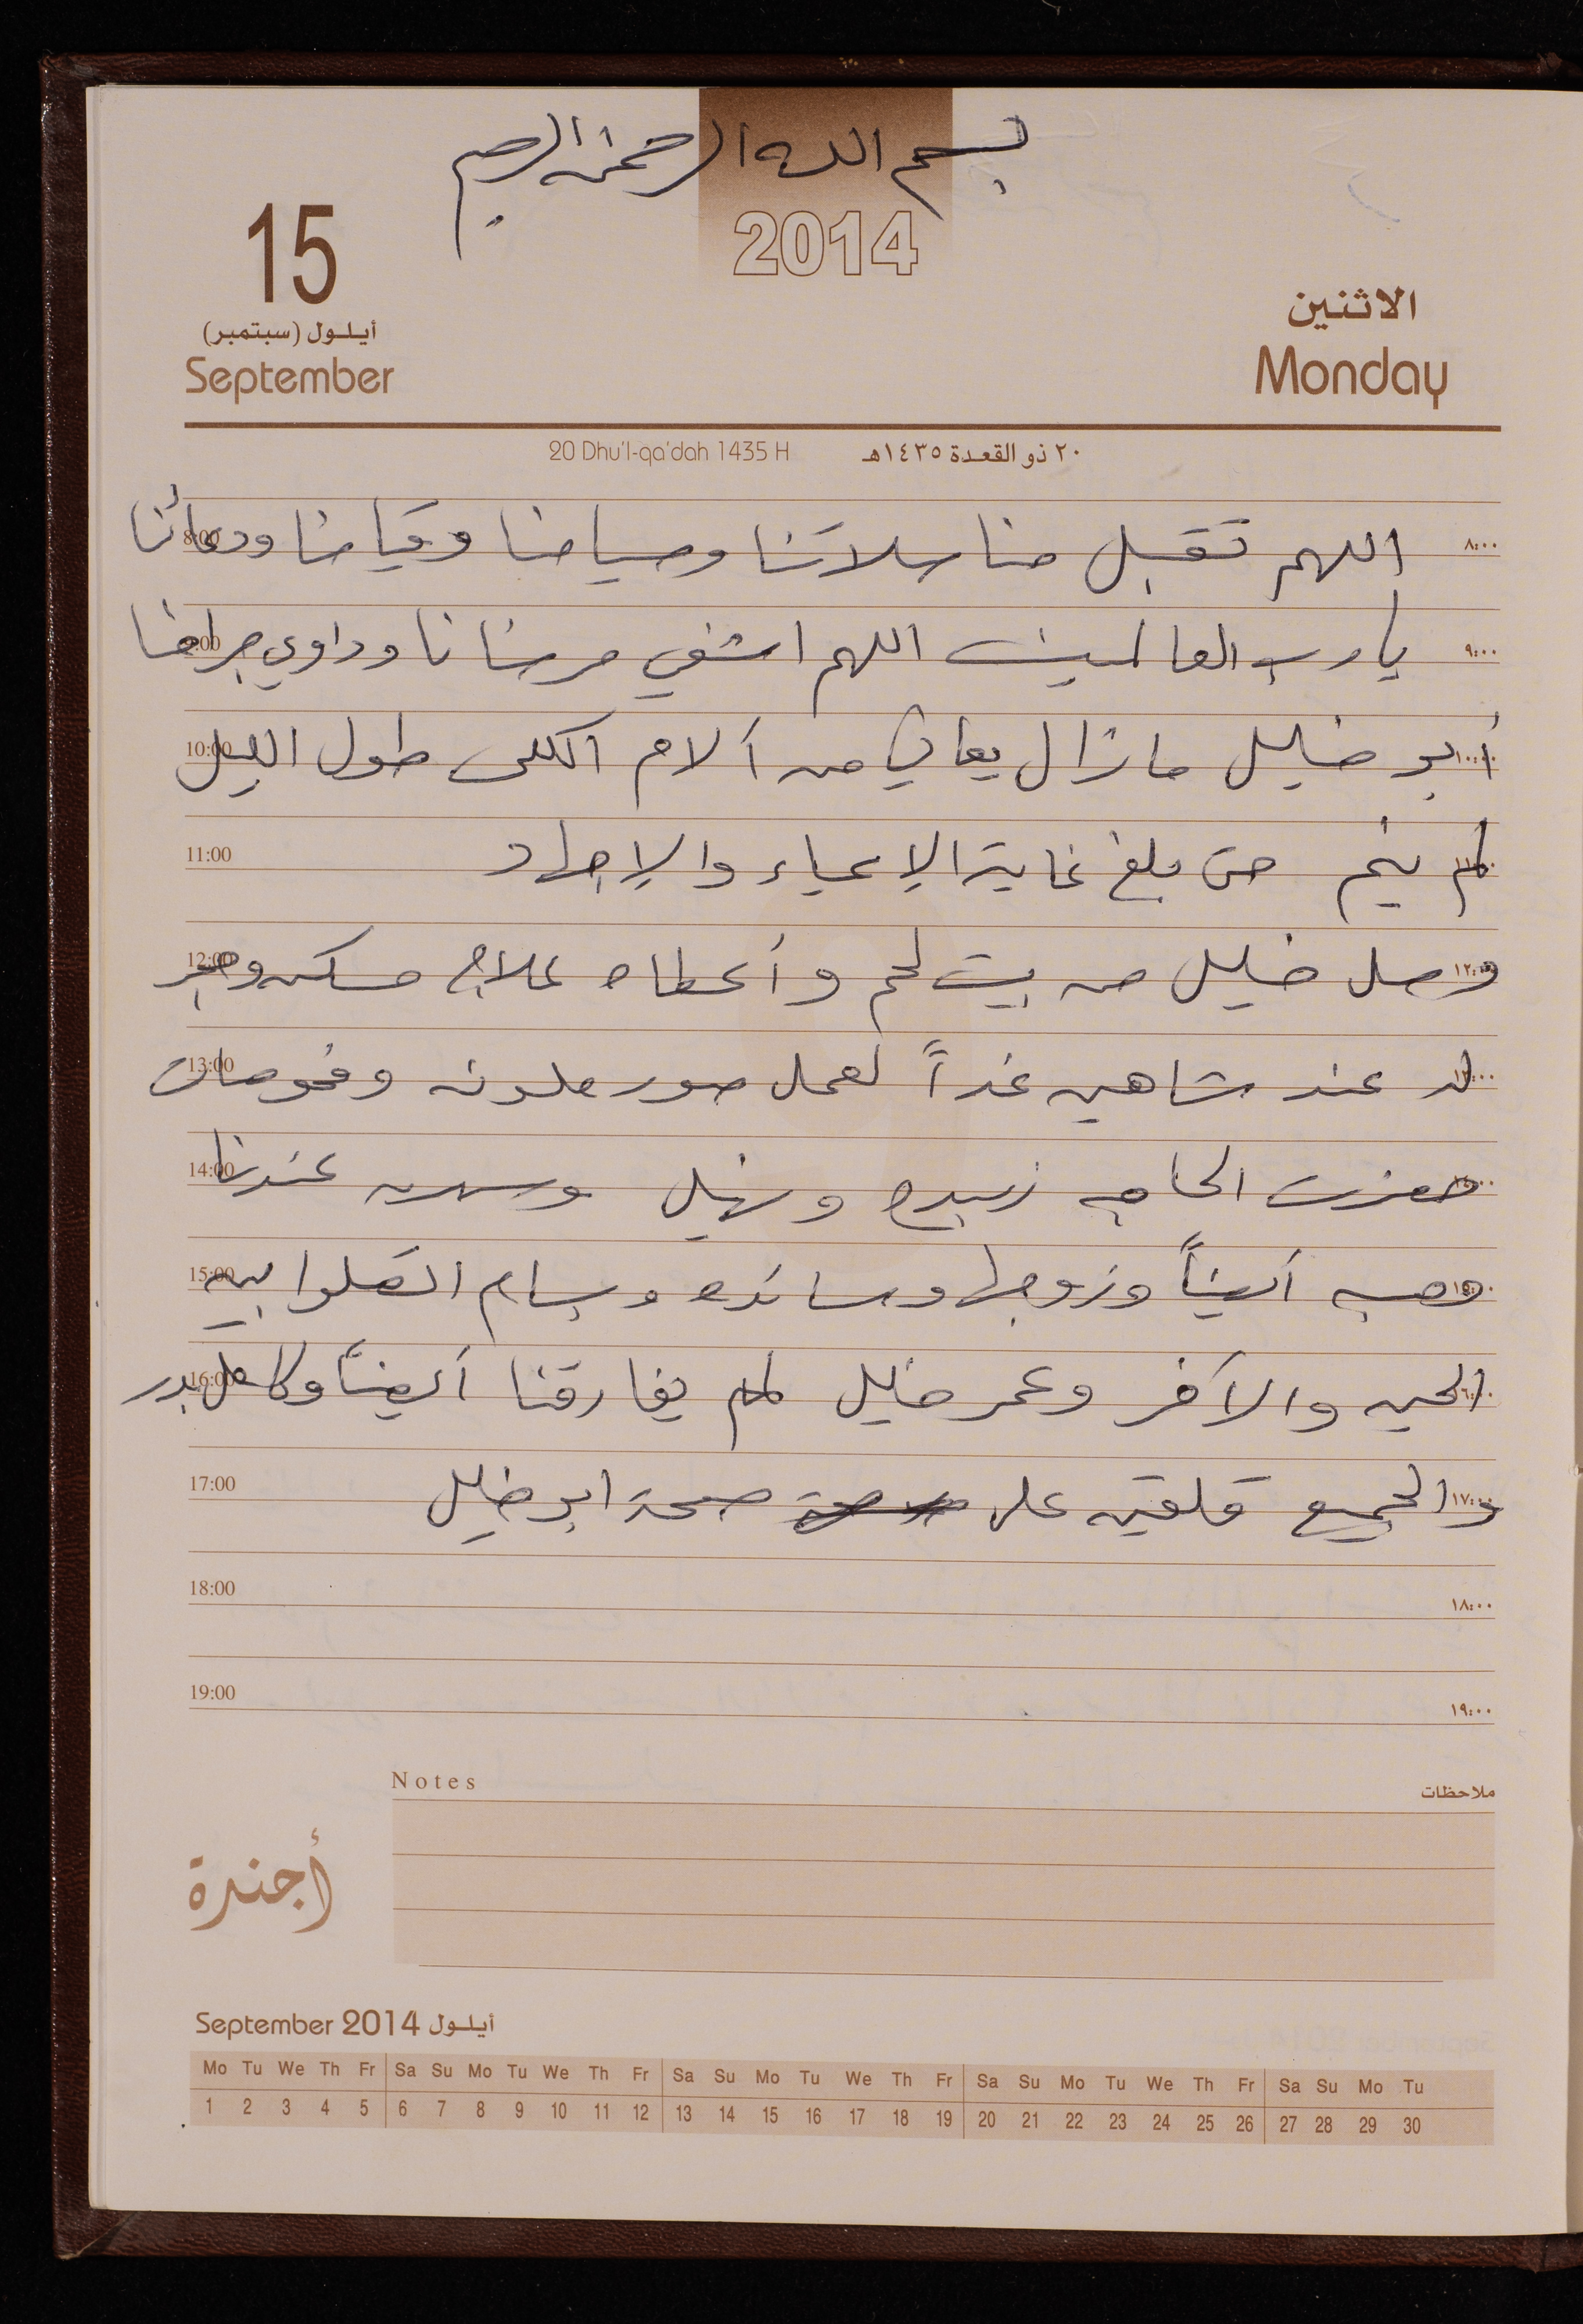 بسم الله الرحمن الرحيم
2014
15
أيلول (سبتمبر)
September
الاثنين
Monday
20 Dhu'l-qa'dah 1435 H
٢٠ ذو القعدة ١٤٣٥هـ
8:00 اللهم تقبل منا صلاتنا وصيامنا وقيامنا ودعائنا ٨:٠٠
9:00 يا رب العالمين اللهم اشفي مرضانا وداوي جراحنا ٩:٠٠
10:00 أبو خليل ما زال يعاني من آلام الكلى طول الليل ١٠:٠٠
11:00 لم ينم حتى بلغ غاية الإعياء والإجهاد ١١:٠٠
12:00 وصل خليل من بيت لحم وأعطاه علاج مسكن وحجز ١٢:٠٠
13:00 له عند شاهين غداً لعمل صور ملونه وفحوصات ١٣:٠٠
14:00 حضرت الحاجه زبيده ونهيل وسهرن عندنا ١٤:٠٠
15:00 أيضاً وزوجها وسائده وبسام اتصلوا بين ١٥:٠٠
16:00 الحين والآخر وعمر خليل لم يفارقنا أيضاً وكامل بدر ١٦:٠٠
17:00 والجميع قلقين على صحة ابو خليل ١٧:٠٠
18:00 ١٨:٠٠
19:00 ١٩:٠٠
Notes ملاحظات
أجندة
September 2014 أيلول
Mo Tu We Th Fr Sa Su Mo Tu We Th Fr Sa Su Mo Tu We Th Fr Sa Su Mo Tu We Th Fr Sa Su Mo Tu
1 2 3 4 5 6 7 8 9 10 11 12 13 14 15 16 17 18 19 20 21 22 23 24 25 26 27 28 29 30